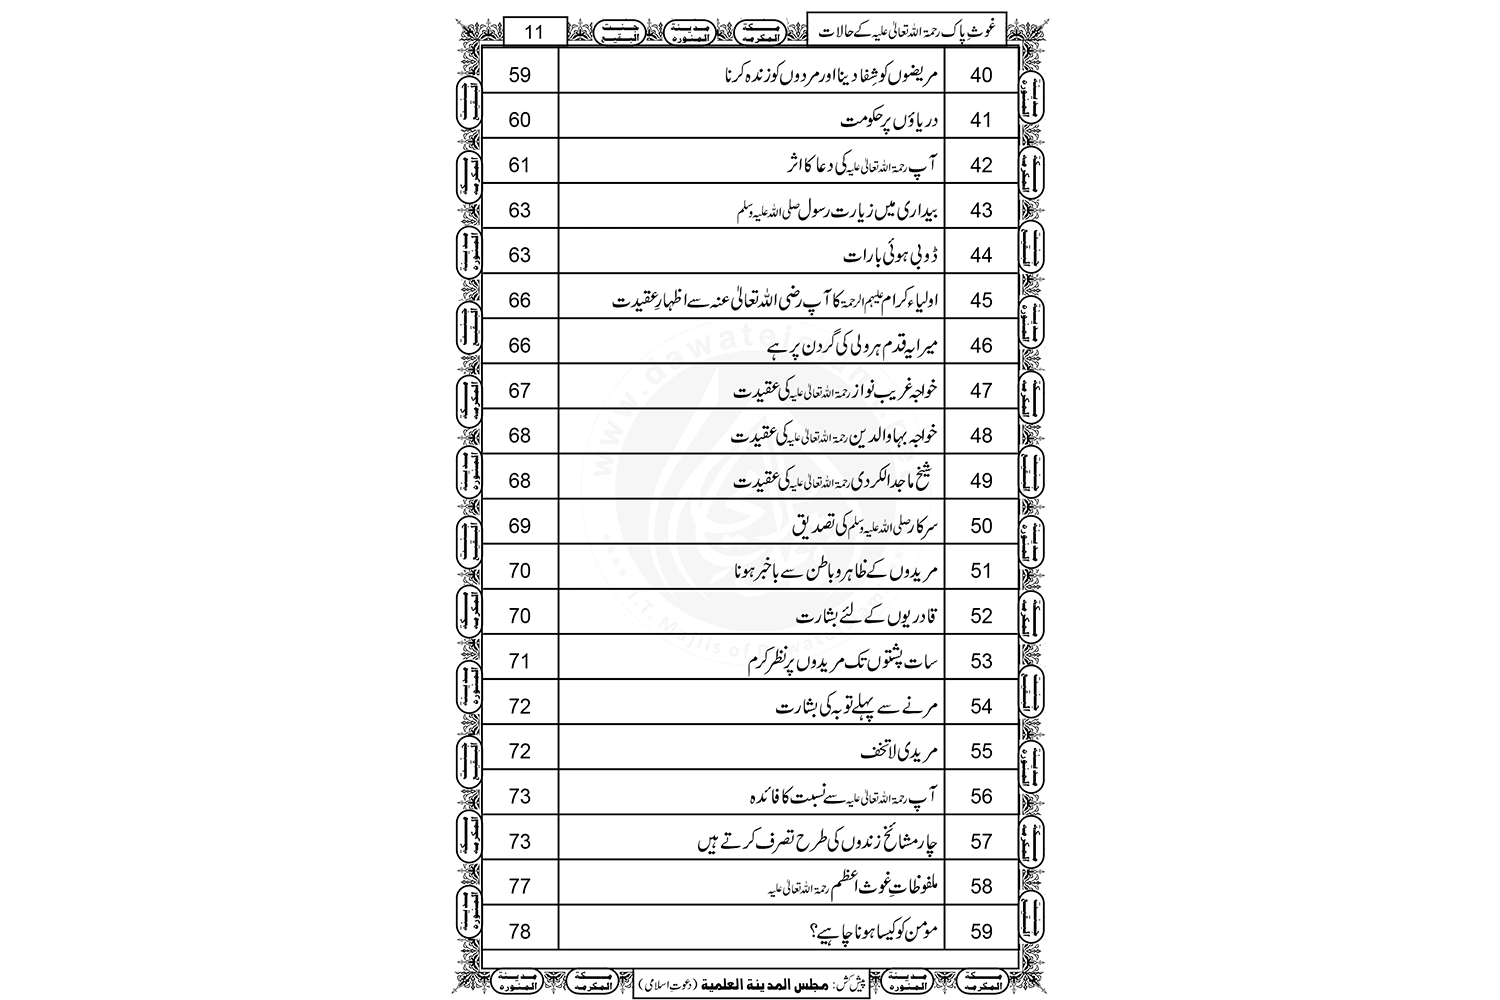 غوثِ پاک رحمۃ اللہ تعالیٰ علیہ کے حالات
جنت البقیع
مدینۃ المنورہ
مکۃ المکرمہ
11
40 مریضوں کو شِفا دینا اور مردوں کو زندہ کرنا 59
41 دریاؤں پر حکومت 60
42 آپ رحمۃ اللہ تعالیٰ علیہ کی دعا کا اثر 61
43 بیداری میں زیارت رسول صلی اللہ علیہ وسلم 63
44 ڈوبی ہوئی بارات 63
45 اولیاء کرام علیہم الرحمۃ کا آپ رضی اللہ تعالیٰ عنہ سے اظہارِ عقیدت 66
46 میرا یہ قدم ہر ولی کی گردن پر ہے 66
47 خواجہ غریب نواز رحمۃ اللہ تعالیٰ علیہ کی عقیدت 67
48 خواجہ بہاوالدین رحمۃ اللہ تعالیٰ علیہ کی عقیدت 68
49 شیخ ماجد الکردی رحمۃ اللہ تعالیٰ علیہ کی عقیدت 68
50 سرکار صلی اللہ علیہ وسلم کی تصدیق 69
51 مریدوں کے ظاہر و باطن سے باخبر ہونا 70
52 قادریوں کے لئے بشارت 70
53 سات پشتوں تک مریدوں پر نظر کرم 71
54 مرنے سے پہلے توبہ کی بشارت 72
55 مریدی لا تخف 72
56 آپ رحمۃ اللہ تعالیٰ علیہ سے نسبت کا فائدہ 73
57 چار مشائخ زندوں کی طرح تصرف کرتے ہیں 73
58 ملفوظاتِ غوث اعظم رحمۃ اللہ تعالیٰ علیہ 77
59 مومن کو کیسا ہونا چاہیے؟ 78
پیش کش: مجلس المدينة العلمية (دعوتِ اسلامی)